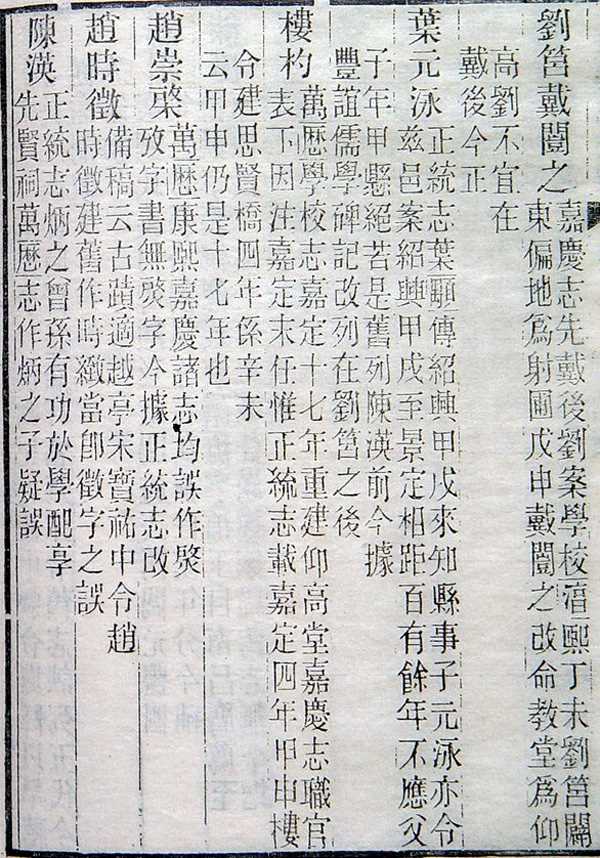 劉筥戴闓之
嘉慶志先戴後劉案學校湻熙丁未劉筥闢
東偏地爲射圃戊申戴闓之改命教堂爲仰
高劉不宜在
戴後今正
葉元泳
正統志葉顒傳紹興甲戌來知縣事子元泳亦令
茲邑案紹興甲戌至景定相距百有餘年不應父
子年甲懸絕若是舊列陳渶前今據
豐誼儒學碑記改列在劉筥之後
樓杓
萬歷學校志嘉定十七年重建仰高堂嘉慶志職官
表下因注嘉定末任惟正統志載嘉定四年甲申樓
令建思賢橋四年係辛未
云甲申仍是十七年也
趙崇棨
萬歷康熙嘉慶諸志均誤作
攷字書無字今據正統志改
趙時徵
備稿云古蹟適越亭宋寶祐中令趙
時徵建舊作時緻當卽徵字之誤
陳渶
正統志炳之曾孫有功於學配享
先賢祠萬歷志作炳之子疑誤